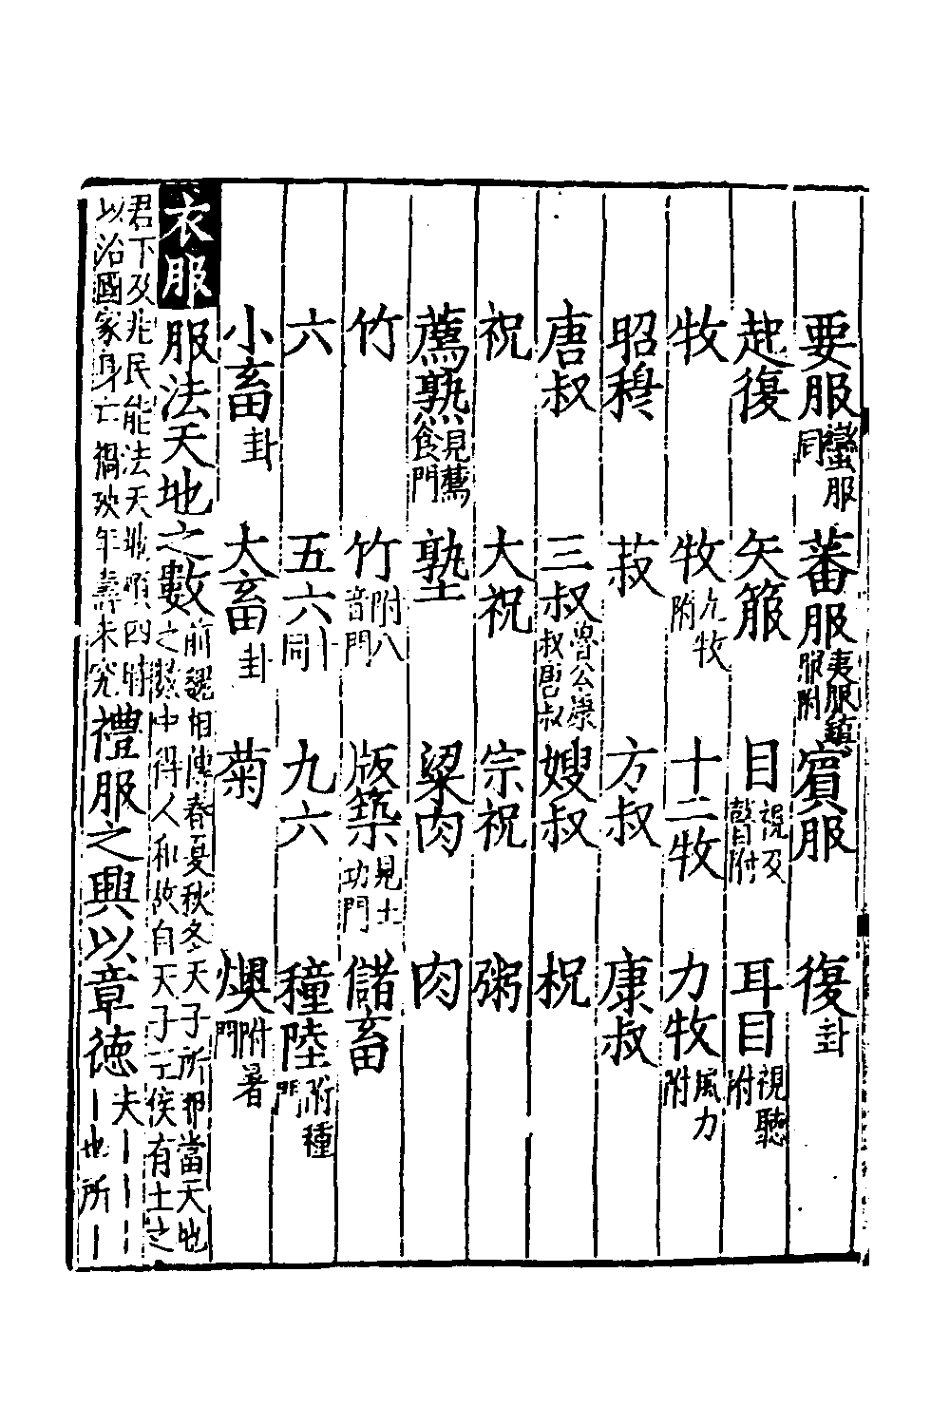 要服蠻服同 蕃服夷服鎮服附 賓服 復卦
起復 矢箙 目視及瞽附 耳目視聽附
牧 牧九牧附 十二牧 力牧風力附
昭穆 菽 方叔 康叔
唐叔 三叔魯公康叔唐叔 嫂叔 柷
祝 大祝 宗祝 粥
薦熟見薦食門 塾 粱肉 肉
竹 竹附八音門 版築見土功門 儲畜
六 五六同 九六 穜陸附種門
小畜卦 大畜卦 菊 燠附暑門
衣服 服法天地之數前魏相傳春夏秋冬天子所服當天地之數中得人和故自天子王侯有土之
君下及兆民能法天地順四時以治國家身亡禍殃年壽未究禮服之興以章德夫